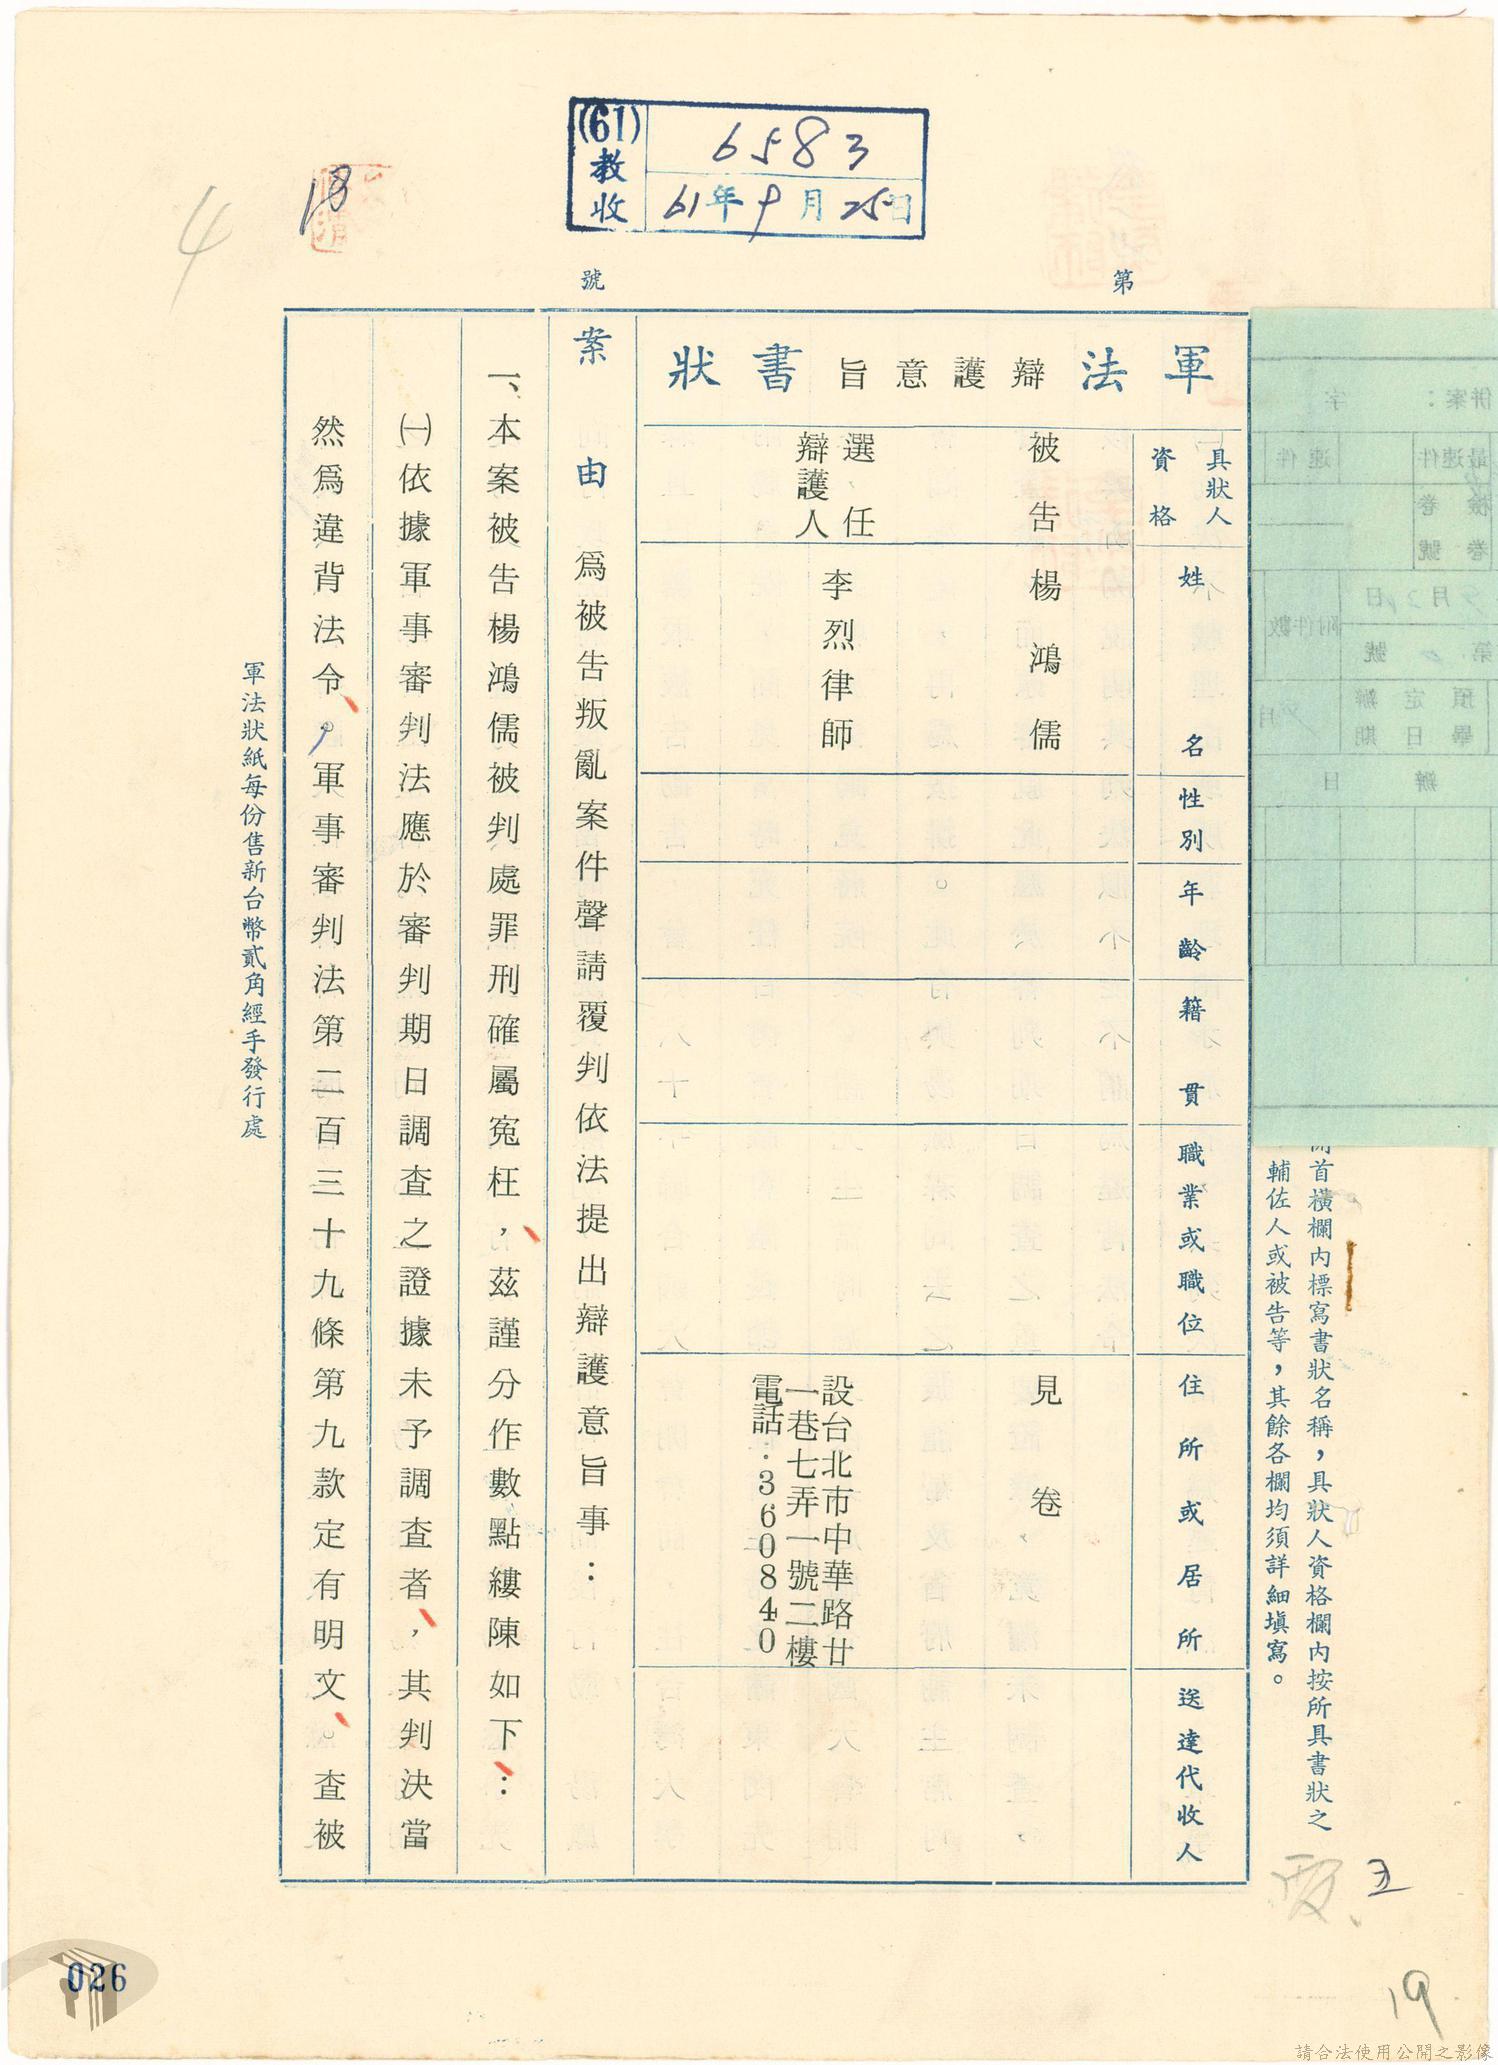 (61)教收
6583
61年9月25日
18
4
第 號
開首橫欄內標寫書狀名稱,具狀人資格欄內按所具書狀之
輔佐人或被告等,其餘各欄均須詳細填寫。
軍法辯護意旨書狀
具狀人
資格
姓名
性別
年齡
籍貫
職業或職位
住所或居所
送達代收人
被告
楊鴻儒
見卷
選任
辯護人
李烈律師
設台北市中華路廿
一巷七弄一號二樓
電話:360840
案由 為被告叛亂案件聲請覆判依法提出辯護意旨事:
一、本案被告楊鴻儒被判處罪刑確屬冤枉,茲謹分作數點縷陳如下:
㈠依據軍事審判法應於審判期日調查之證據未予調查者,其判決當
然為違背法令,軍事審判法第二百三十九條第九款定有明文。查被
軍法狀紙每份售新台幣貳角經手發行處
19
026
請合法使用公開之影像